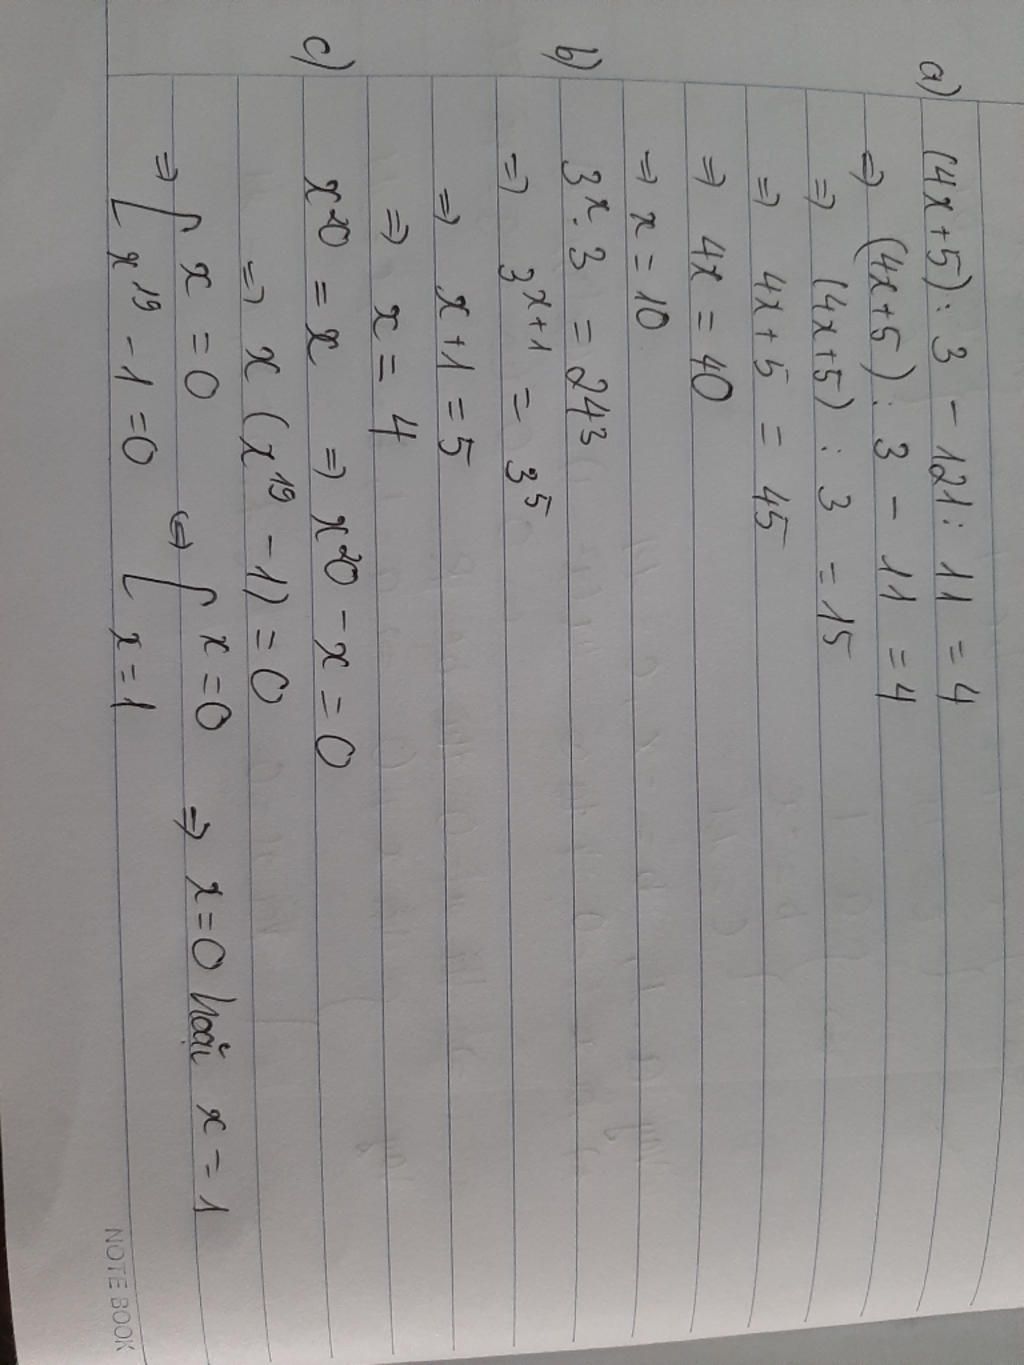 a) (4x+5) : 3 - 121 : 11 = 4
⇒ (4x+5) : 3 - 11 = 4
⇒ (4x+5) : 3 = 15
⇒ 4x+5 = 45
⇒ 4x = 40
⇒ x = 10
b) 3^x . 3 = 243
⇒ 3^{x+1} = 3^5
⇒ x+1 = 5
⇒ x = 4
c) x^{20} = x ⇒ x^{20} - x = 0
⇒ x (x^{19} - 1) = 0
⇒ [ x = 0 ⇔ [ x = 0 ⇒ x = 0 hoặc x = 1
x^{19} - 1 = 0 x = 1
NOTE BOOK